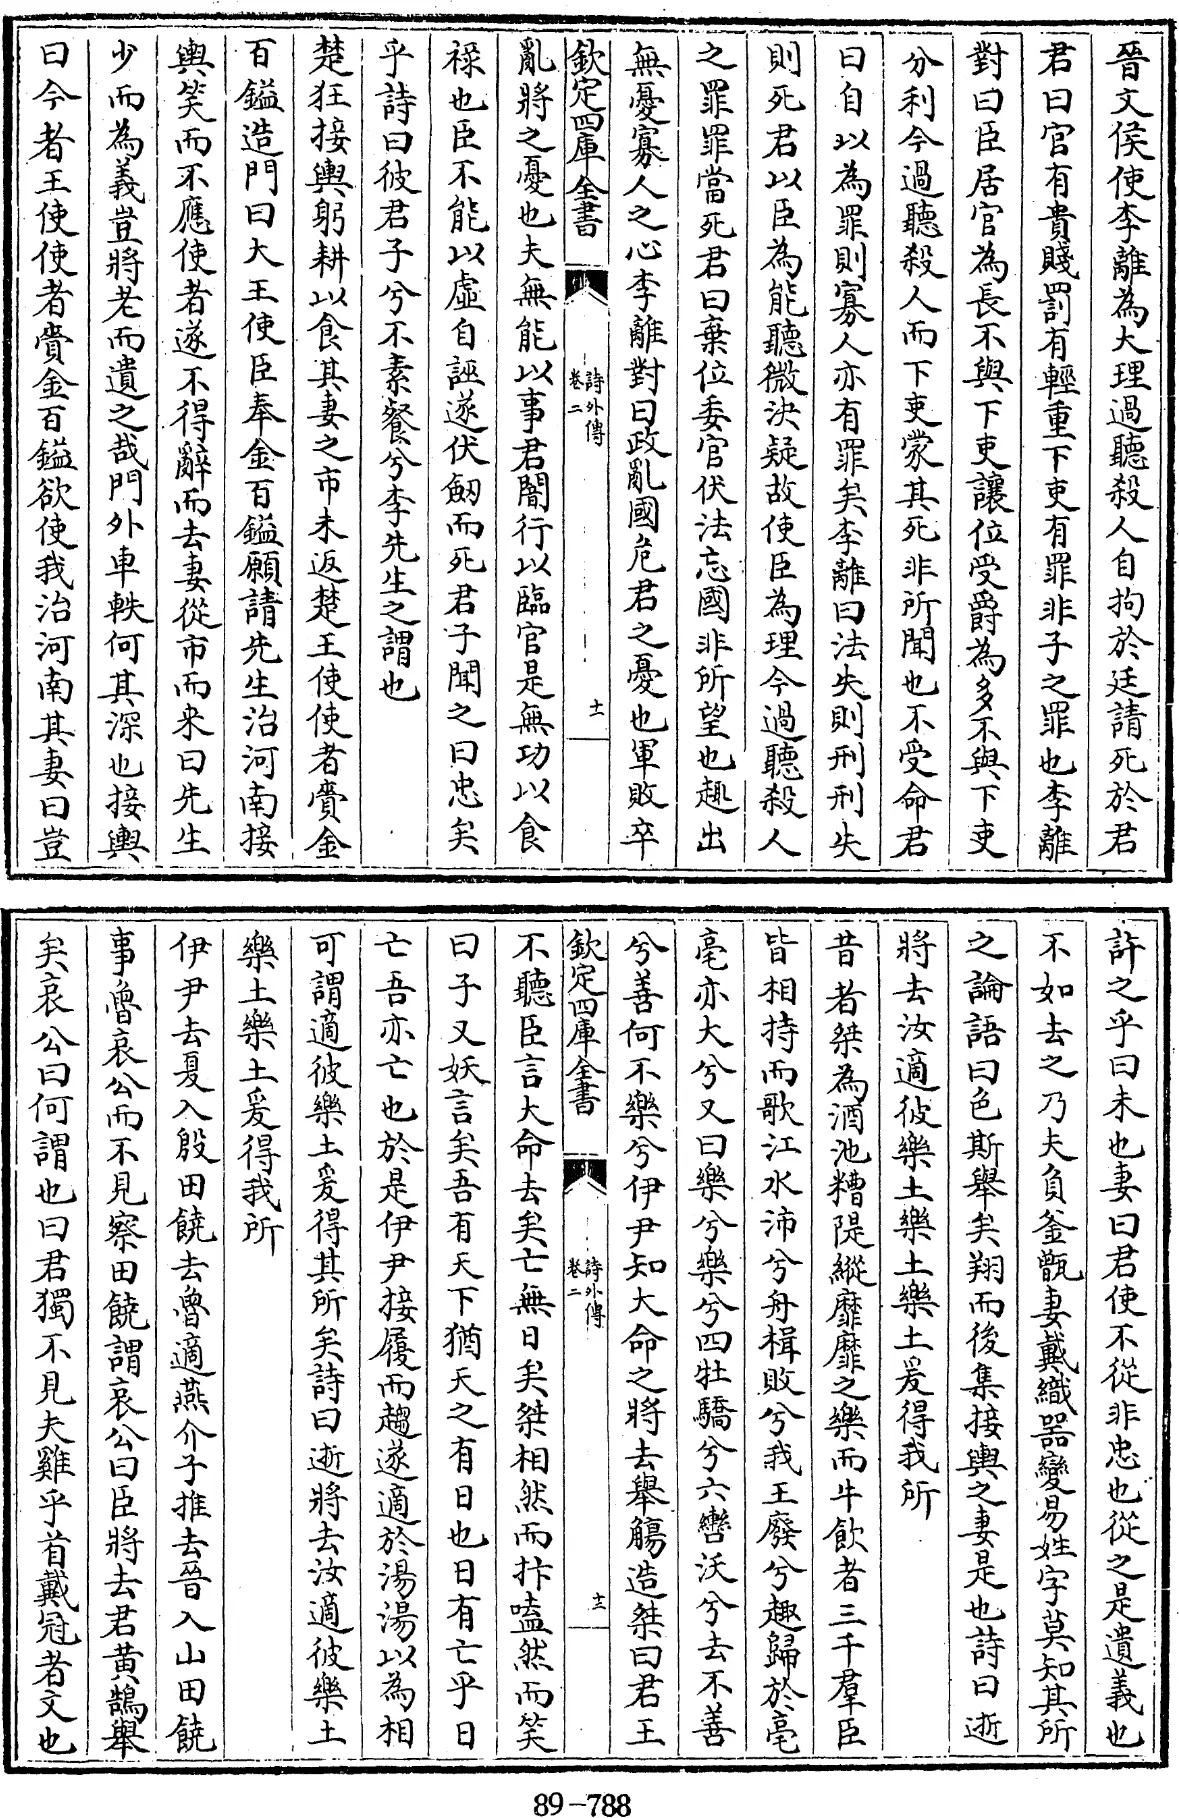 晉文侯使李離為大理過聽殺人自拘於廷請死於君
君曰官有貴賤罰有輕重下吏有罪非子之罪也李離
對曰臣居官為長不與下吏讓位受爵為多不與下吏
分利今過聽殺人而下吏蒙其死非所聞也不受命君
曰自以為罪則寡人亦有罪矣李離曰法失則刑刑失
則死君以臣為能聽微決疑故使臣為理今過聽殺人
之罪罪當死君曰棄位委官伏法忘國非所望也趣出
無憂寡人之心李離對曰政亂國危君之憂也軍敗卒
欽定四庫全書
詩外傳
卷二
十一
亂將之憂也夫無能以事君闇行以臨官是無功以食
祿也臣不能以虛自誣遂伏劒而死君子聞之曰忠矣
乎詩曰彼君子兮不素餐兮李先生之謂也
楚狂接輿躬耕以食其妻之市未返楚王使使者賫金
百鎰造門曰大王使臣奉金百鎰願請先生治河南接
輿笑而不應使者遂不得辭而去妻從市而来曰先生
少而為義豈將老而遺之哉門外車軼何其深也接輿
曰今者王使使者賫金百鎰欲使我治河南其妻曰豈
許之乎曰未也妻曰君使不從非忠也從之是遺義也
不如去之乃夫負釜甑妻戴織器變易姓字莫知其所
之論語曰色斯舉矣翔而後集接輿之妻是也詩曰逝
將去汝適彼樂土樂土樂土爰得我所
昔者桀為酒池糟隄縱靡靡之樂而牛飲者三千羣臣
皆相持而歌江水沛兮舟楫敗兮我王廢兮趣歸於亳
亳亦大兮又曰樂兮樂兮四牡驕兮六轡沃兮去不善
兮善何不樂兮伊尹知大命之將去舉觴造桀曰君王
欽定四庫全書
詩外傳
卷二
十二
不聽臣言大命去矣亡無日矣桀相然而抃嗑然而笑
曰子又妖言矣吾有天下猶天之有日也日有亡乎日
亡吾亦亡也於是伊尹接履而趨遂適於湯湯以為相
可謂適彼樂土爰得其所矣詩曰逝將去汝適彼樂土
樂土樂土爰得我所
伊尹去夏入殷田饒去魯適燕介子推去晉入山田饒
事魯哀公而不見察田饒謂哀公曰臣將去君黃鵠舉
矣哀公曰何謂也曰君獨不見夫雞乎首戴冠者文也
89-788